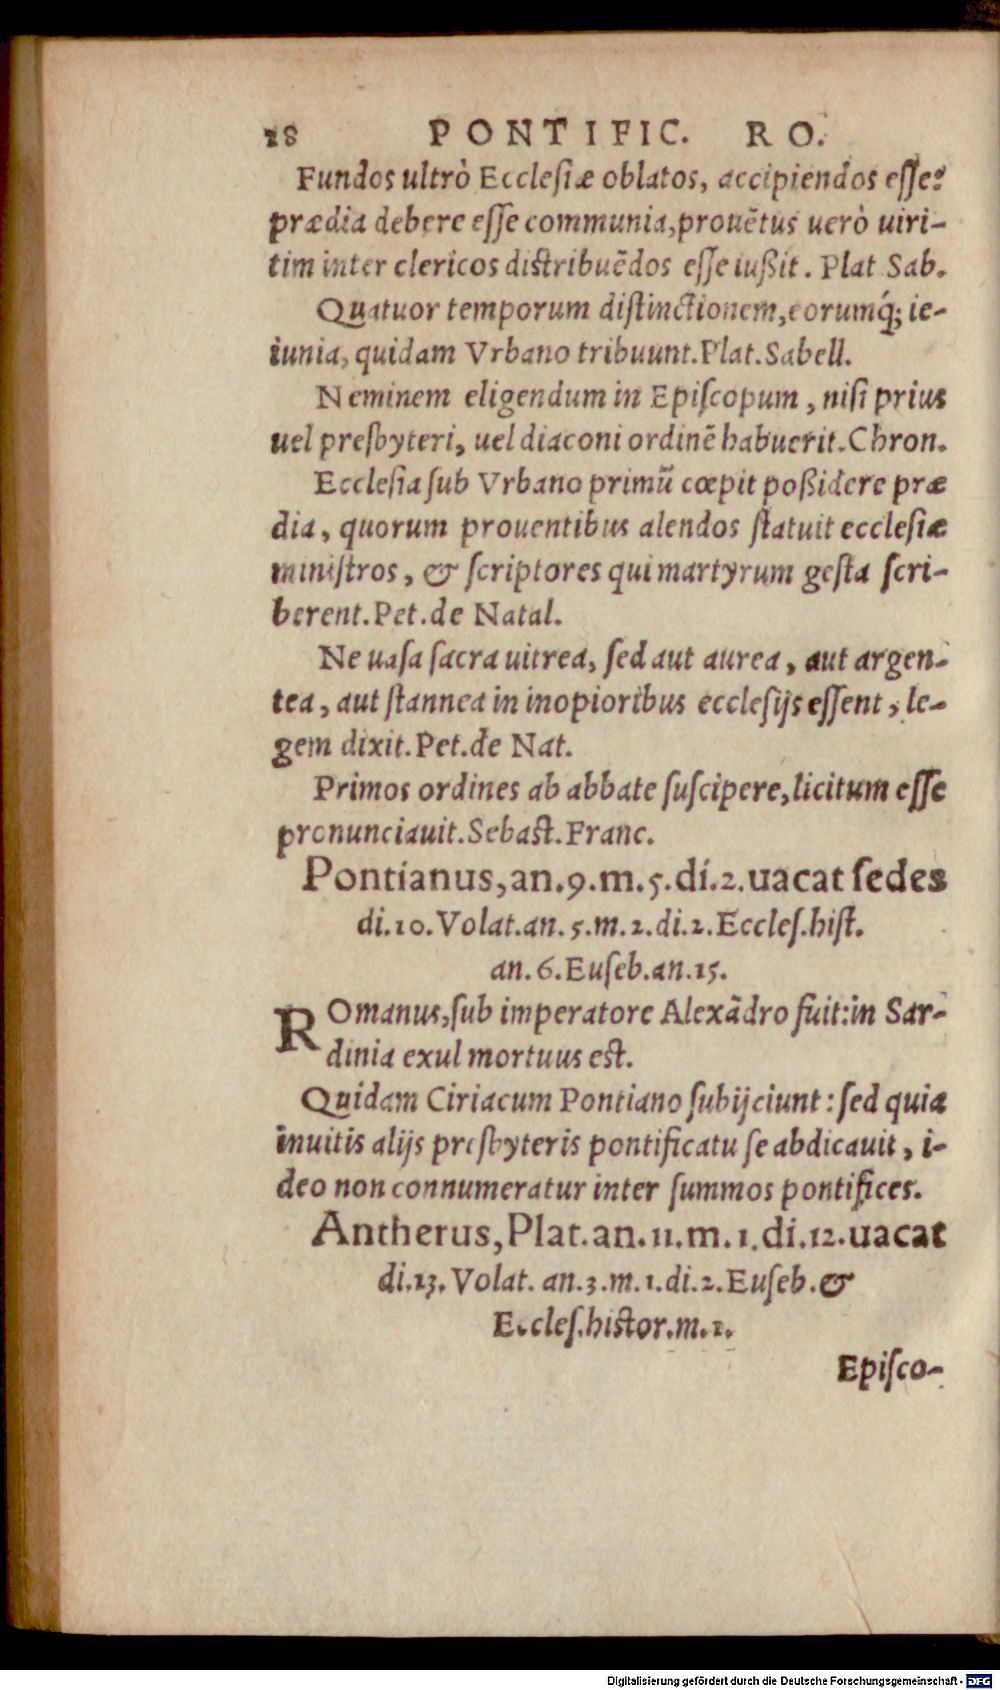 28 PONTIFIC. RO.
Fundos ultrò Ecclesiæ oblatos, accipiendos esse:
prædia debere esse communia, prouētus uerò uiri-
tim inter clericos distribuēdos esse iußit. Plat Sab.
Quatuor temporum distinctionem, eorumq́; ie-
iunia, quidam Vrbano tribuunt. Plat. Sabell.
Neminem eligendum in Episcopum, nisi prius
uel presbyteri, uel diaconi ordinē habuerit. Chron.
Ecclesia sub Vrbano primū cœpit poßidere præ
dia, quorum prouentibus alendos statuit ecclesiæ
ministros, & scriptores qui martyrum gesta scri-
berent. Pet. de Natal.
Ne uasa sacra uitrea, sed aut aurea, aut argen-
tea, aut stannea in inopioribus ecclesijs essent, le-
gem dixit. Pet. de Nat.
Primos ordines ab abbate suscipere, licitum esse
pronunciauit. Sebast. Franc.
Pontianus, an. 9. m. 5. di. 2. uacat sedes
di. 10. Volat. an. 5. m. 2. di. 2. Eccles. hist.
an. 6. Euseb. an. 15.
ROmanus, sub imperatore Alexādro fuit: in Sar-
dinia exul mortuus est.
Quidam Ciriacum Pontiano subijciunt: sed quia
inuitis alijs presbyteris pontificatu se abdicauit, i-
deo non connumeratur inter summos pontifices.
Antherus, Plat. an. 11. m. 1. di. 12. uacat
di. 13. Volat. an. 3. m. 1. di. 2. Euseb. &
Eccles. histor. m. 1.
Episco-
Digitalisierung gefördert durch die Deutsche Forschungsgemeinschaft - DFG